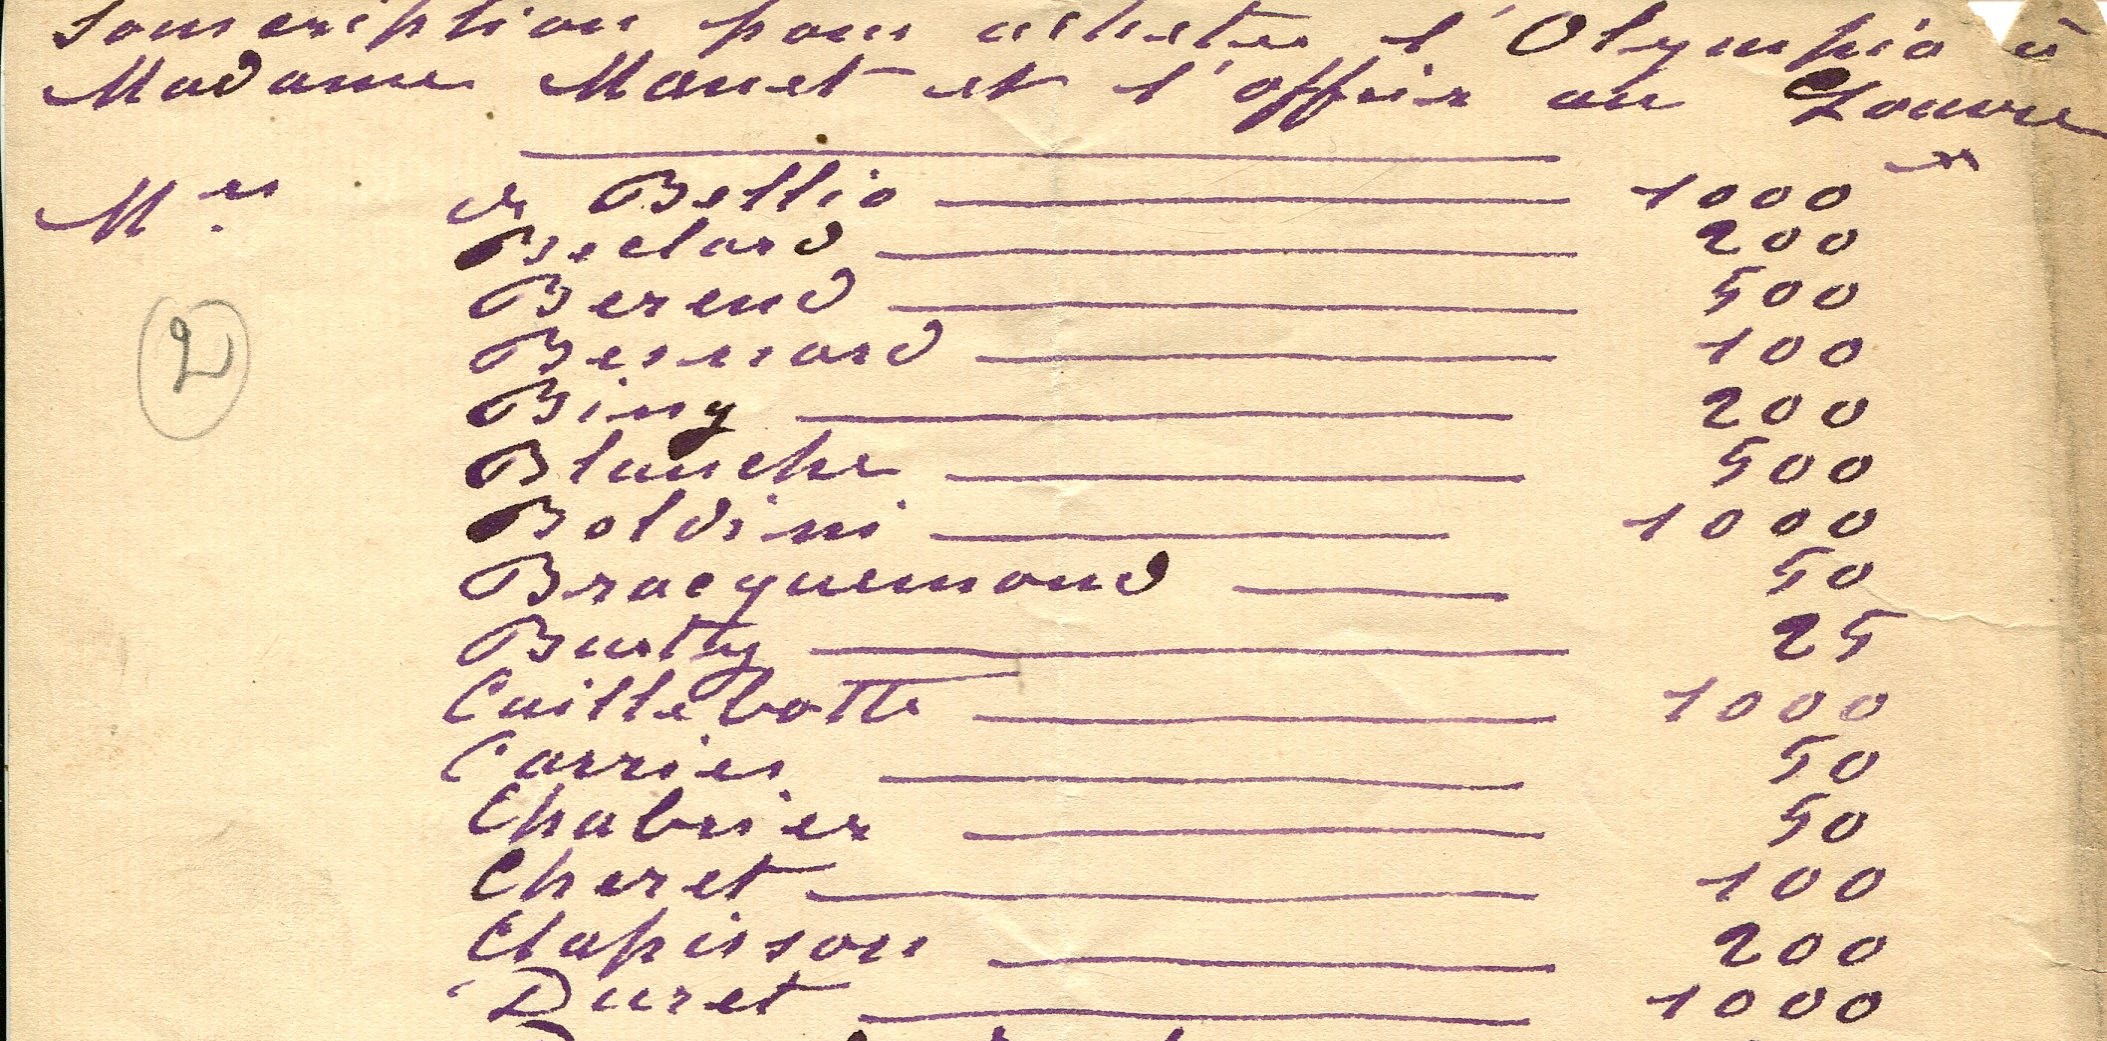 Souscription pour acheter l'Olympia à
Madame Manet et l'offrir au Louvre
Mrs. de Bellio 1000 fr
Beclard 200
Berend 500
2
Besnard 100
Bing 200
Blanche 500
Boldini 1000
Bracquemond 50
Burty 25
Caillebotte 1000
Carries 50
Chabrier 50
Cheret 100
Clapisson 200
Duret 1000